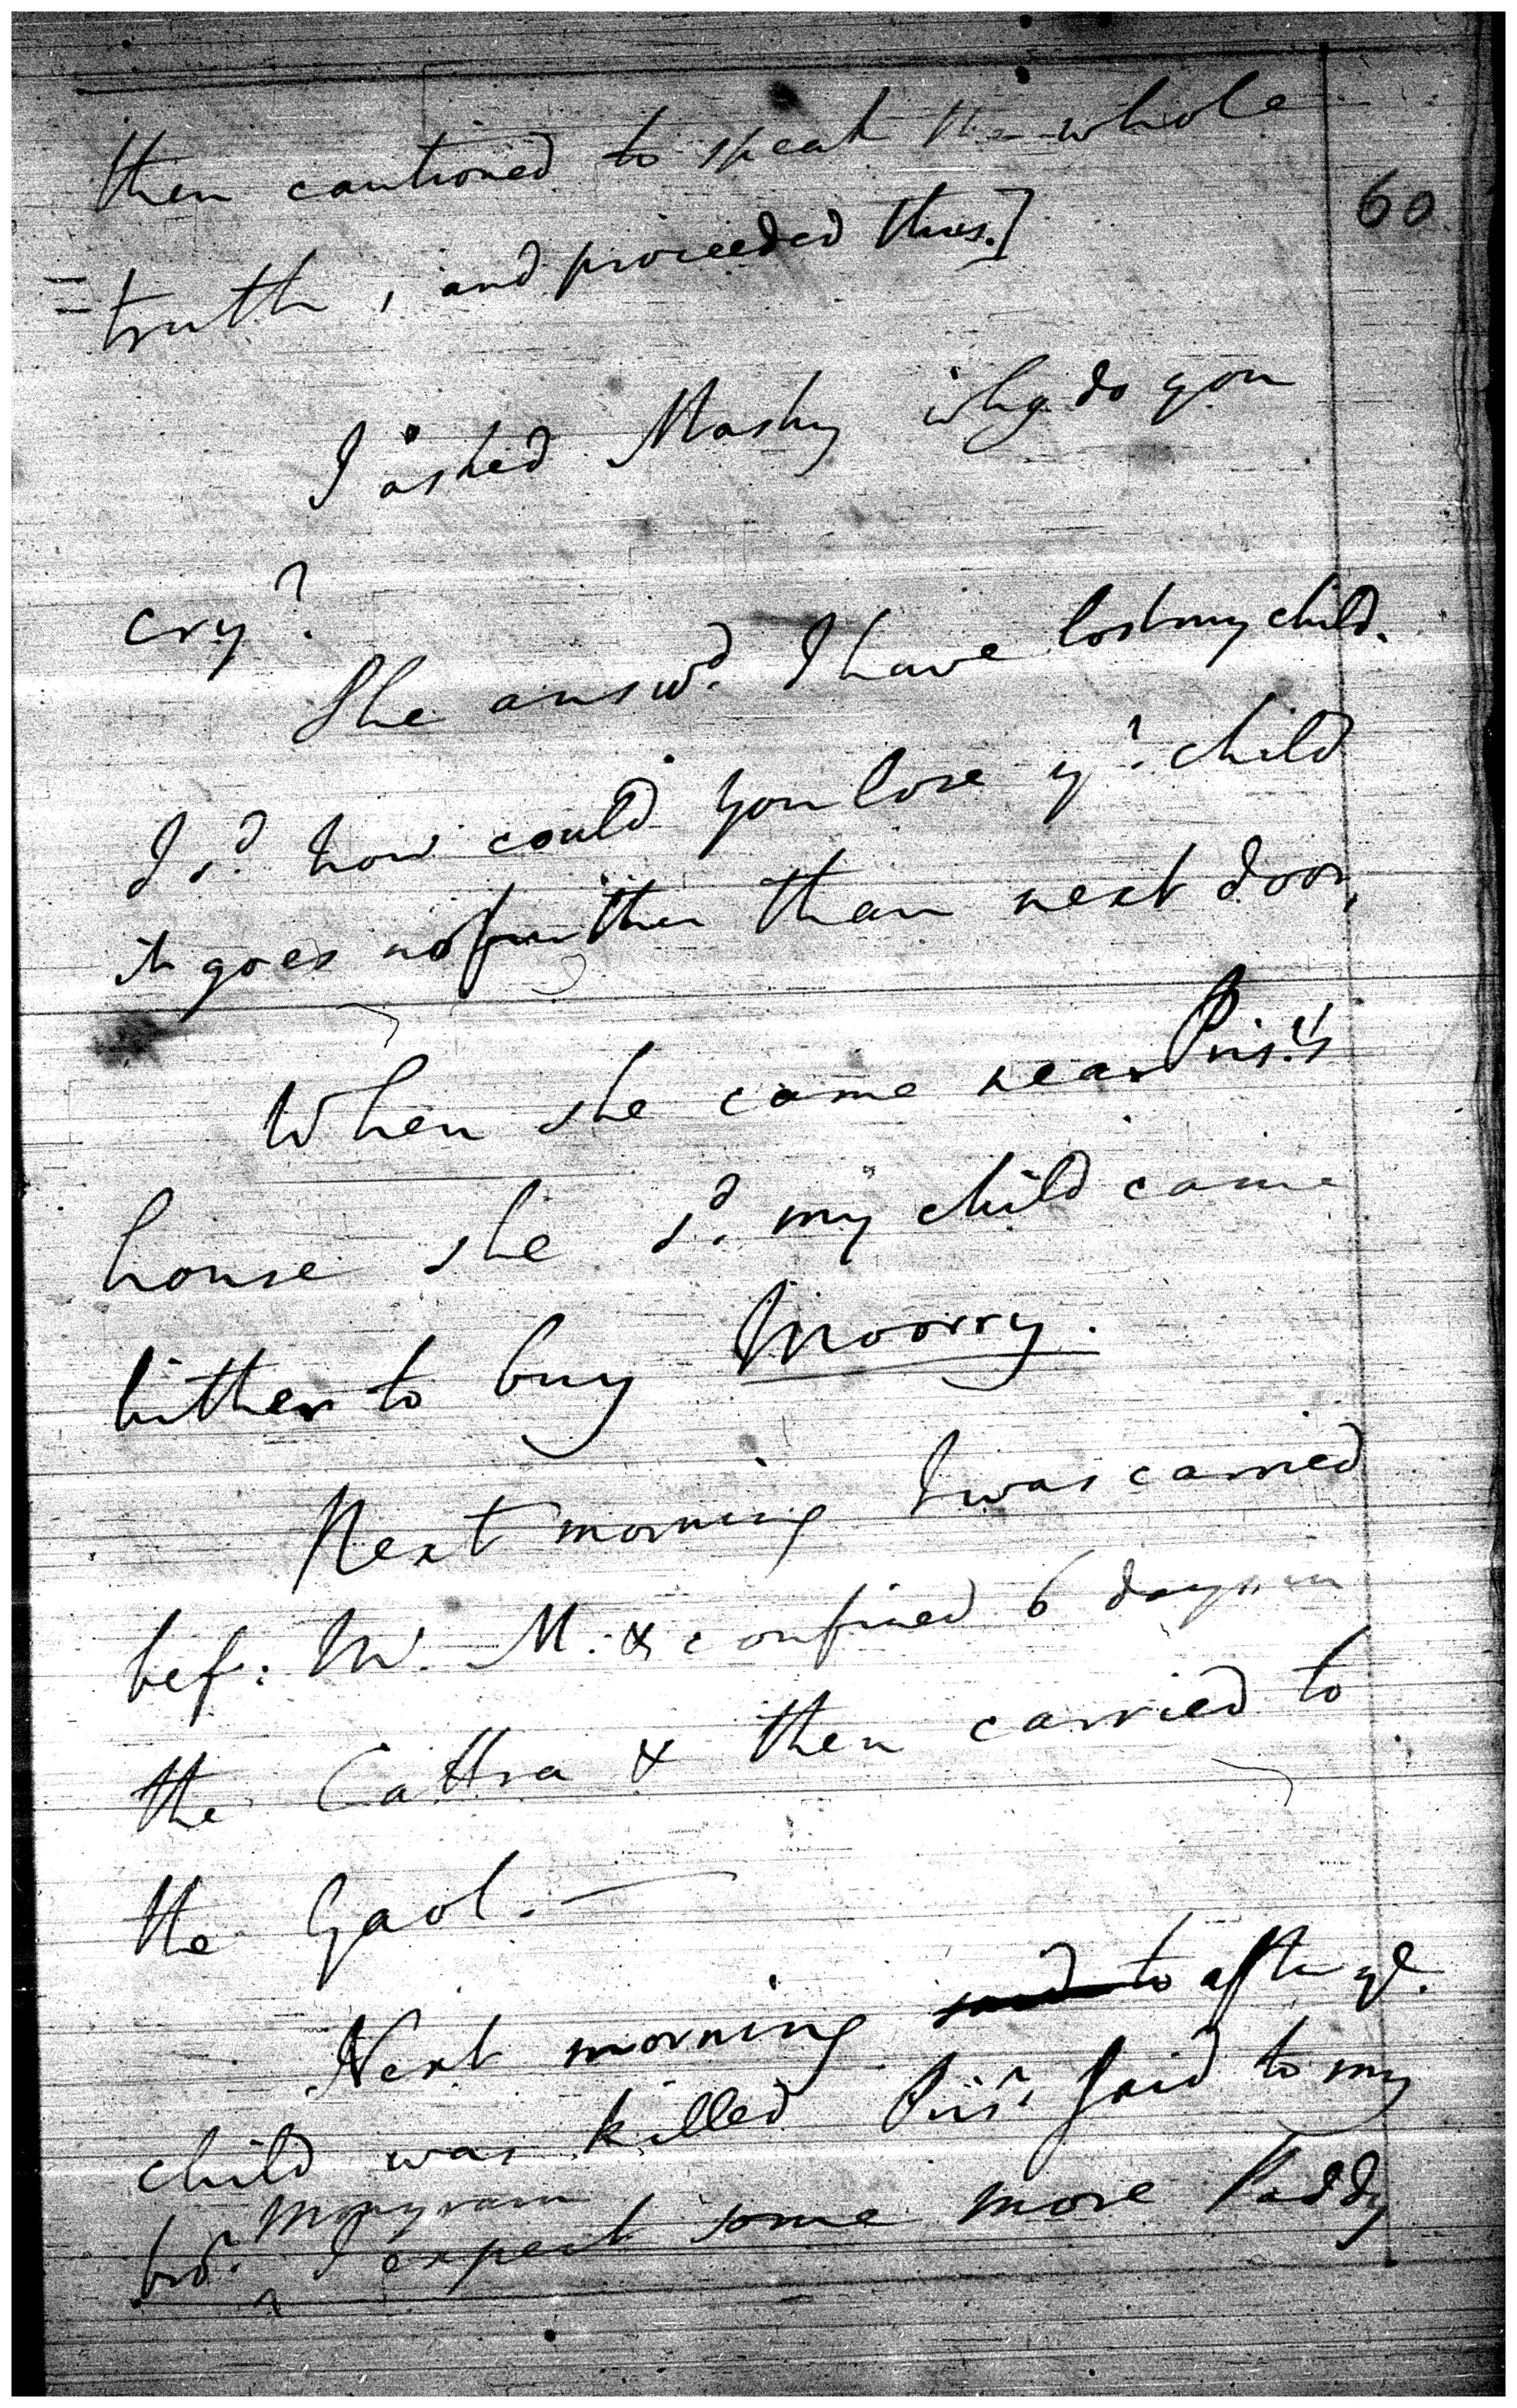 then cautioned to speak the whole
60
= truth, and proceeded thus.]
I asked Mashy why do you
cry?
She answd. I have lost my child.
I sd. how could you lose yr. child
it goes no further than next door,
When she came near Prisr's
house she sd. my child came
hither to buy Moorry.
Next morning I was carried
bef: Mr. M. & confined 6 days in
the Cattra & then carried to
the Gaol. —
Next morning to after ye.
child was killed Prisr. said to my
bror. Monyram I expect some more Paddy